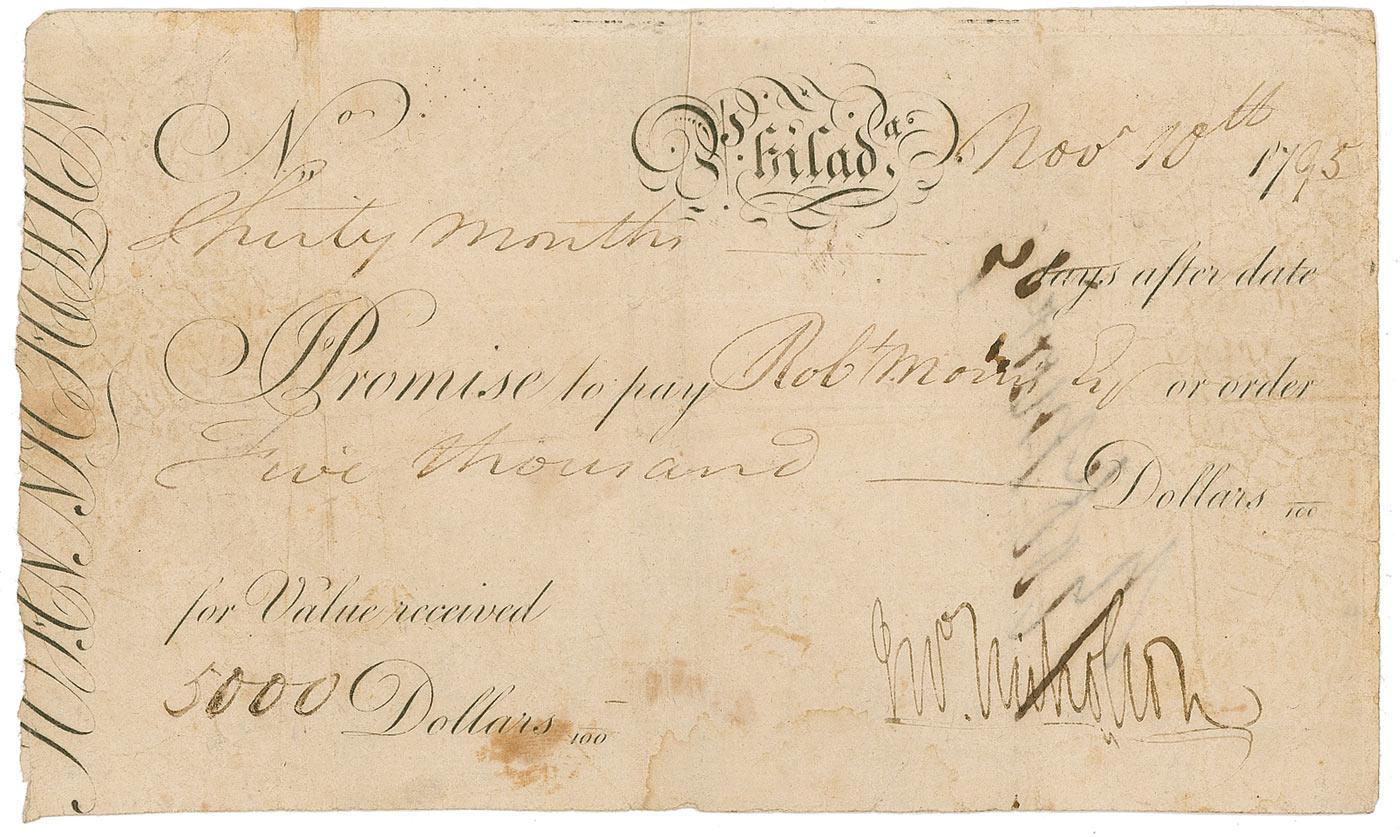 No. Philada. Novr 10th 1795
Thirty months
days after date
Promise to pay Robt Morris Esq or order
Five thousand Dollars 100
for Value received
5000 Dollars 100
Jno. Nicholson